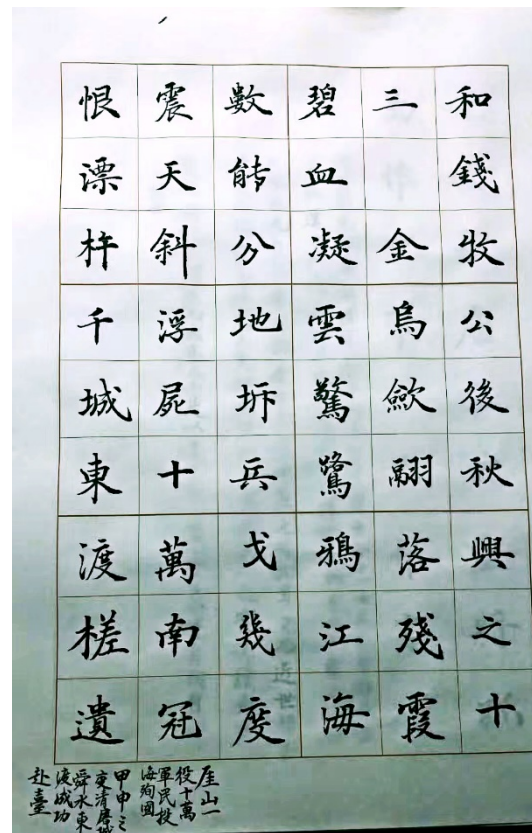 和錢牧公後秋興之十
三 金烏歛翮落殘霞
碧血凝雲驚鷺鴉江海
數能分地坼兵戈幾度
震天斜浮屍十萬南冠
恨漂杵千城東渡槎遺
厓山一
役十萬
軍民投
海殉國
甲申之
變清屠城
舜水東
渡成功
赴臺